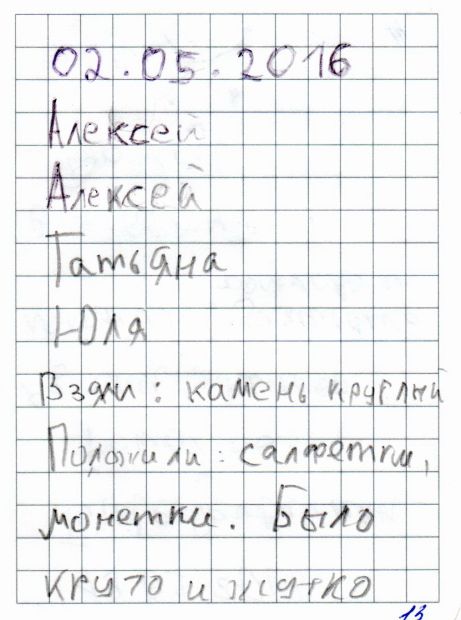 02.05.2016
Алексей
Алексей
Татьяна
Юля
Взяли: камень круглый
Положили: салфетки,
монетки. Было
круто и жутко
13